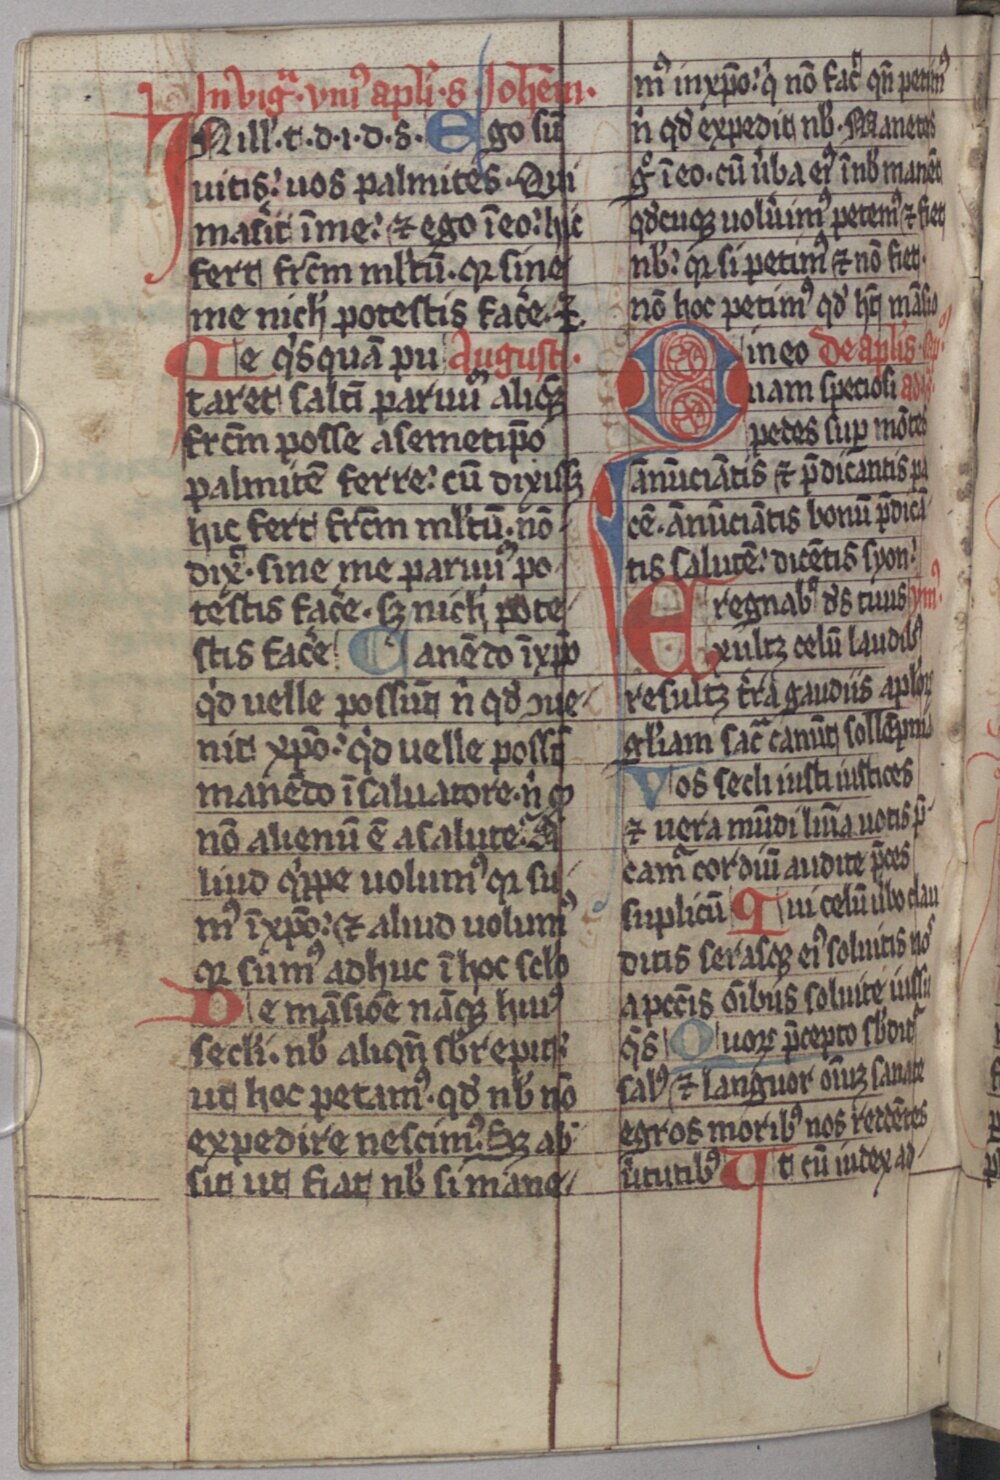 In vigᷓ·vniꝰ apl̄i·s·Ioh̄em·
INill'·t·d·i·d·s·Ego sū
uitis: uos palmites·Qui
man̄it īme: ⁊ ego īeo: hic
fert fr̄cm ml'tū·qꝛ sine
me nich̄ potestis fac̄e·⁊
Ne q̇squā pu Augusti·
taret saltī paruū aliq̄ꝫ
fr̄cm posse asemetip̄o
palmitē ferre: cū dixissꝫ
hic fert fr̄cm ml'tū·nō
dix᷑·sine me paruū po
testis fac̄e·sꝫ nich̄ pote
stis fac̄e Manēdo īxp̄o
q̇d uelle possūt n̄ qd̄ ꝯue
nit xp̄o: q̇d uelle possūt
manēdo īsaluatore·n̄ qd̄
nō alienū ē asalute: A
liud q̇ppe uolumꝰ qꝛ su
mꝰ īxp̄o: ⁊ aliud uolumꝰ
qꝛ sūmꝰ adhuc īhoc sc̄lo
De māsiōe nāqꝫ huiꝰ
sec̄li·nb̄ aliqn̄ sb̄repit:
ut hoc petamꝰ·qd̄ nb̄ nō
expedire nescimꝰ: Sꝫ ab
sit ut fiat nb̄ si mane
mꝰ inxp̄o: q̇ nō fac᷑ qn̄ petimꝰ
n̄ qd̄ expedit nb̄·Manētes
gͦ īeo·cū ūba eiꝰ īnb̄ manēt
qd̄cūqꝫ uolūimꝰ petemꝰ ⁊ fiet
nb̄: qꝛ si petimꝰ ⁊ nō fiet·
nō hoc petimꝰ qd̄ ht̄ māsio
ineo De apl̄is
Quam speciosi
pedes sup mōtes
ānūciātis ⁊ p̄dicantis pa
cē·ānūciātis bonū p̄dicā
tis salutē: dicētis syon:
regnabꝰ ds̄ tuus ymꝰ
Exultꝫ celū laudibꝰ
resultꝫ tr̄a gaudiis aplōꝝ
gl̄iam sac᷑ canūt sollēpnia
Vos secli iusti iudices
⁊ uera mūdi lūīa uotis p̄
camꝰ cordiū audite p̄ces
suplicū Qui celū ūbo clau
ditis serasqꝫ eiꝰ soluitis nos
apcc̄is ōībus soluite iussu
q̄s Quoꝝ p̄cepto sb̄dit᷑
salꝰ ⁊ languor oīuꝫ sanate
egros moribꝰ nos reddētes
ūtutibꝰ Ut cū iudex ad